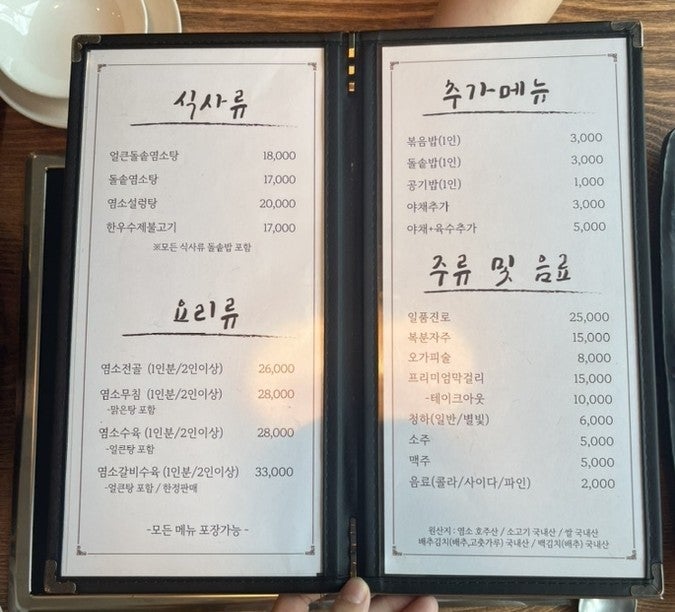 식사류
얼큰돌솥염소탕 18,000
돌솥염소탕 17,000
염소설렁탕 20,000
한우수제불고기 17,000
※모든 식사류 돌솥밥 포함
요리류
염소전골 (1인분/2인이상) 26,000
염소무침 (1인분/2인이상) 28,000
-맑은탕 포함
염소수육 (1인분/2인이상) 28,000
-얼큰탕 포함
염소갈비수육 (1인분/2인이상) 33,000
-얼큰탕 포함 / 한정판매
-모든 메뉴 포장가능-
추가메뉴
볶음밥(1인) 3,000
돌솥밥(1인) 3,000
공기밥(1인) 1,000
야채추가 3,000
야채+육수추가 5,000
주류 및 음료
일품진로 25,000
복분자주 15,000
오가피술 8,000
프리미엄막걸리 15,000
-테이크아웃 10,000
청하(일반/별빛) 6,000
소주 5,000
맥주 5,000
음료(콜라/사이다/파인) 2,000
원산지 : 염소 호주산 / 소고기 국내산 / 쌀 국내산
배추김치(배추,고춧가루) 국내산 / 백김치(배추) 국내산